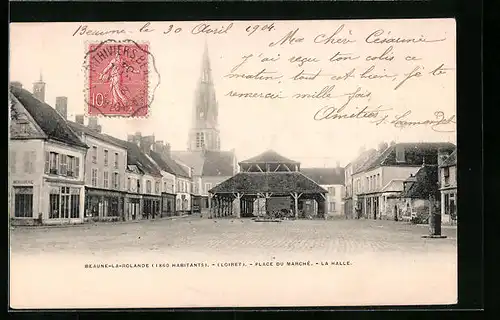 Beaune le 30 Avril 1904
Ma Chère Césarine
j'ai reçu ton colis ce
matin, tout est bien, je te
remercie mille fois.
Amitiés
10
BEAUNE-LA-ROLANDE (1840 HABITANTS). - (LOIRET). - PLACE DU MARCHÉ. - LA HALLE.